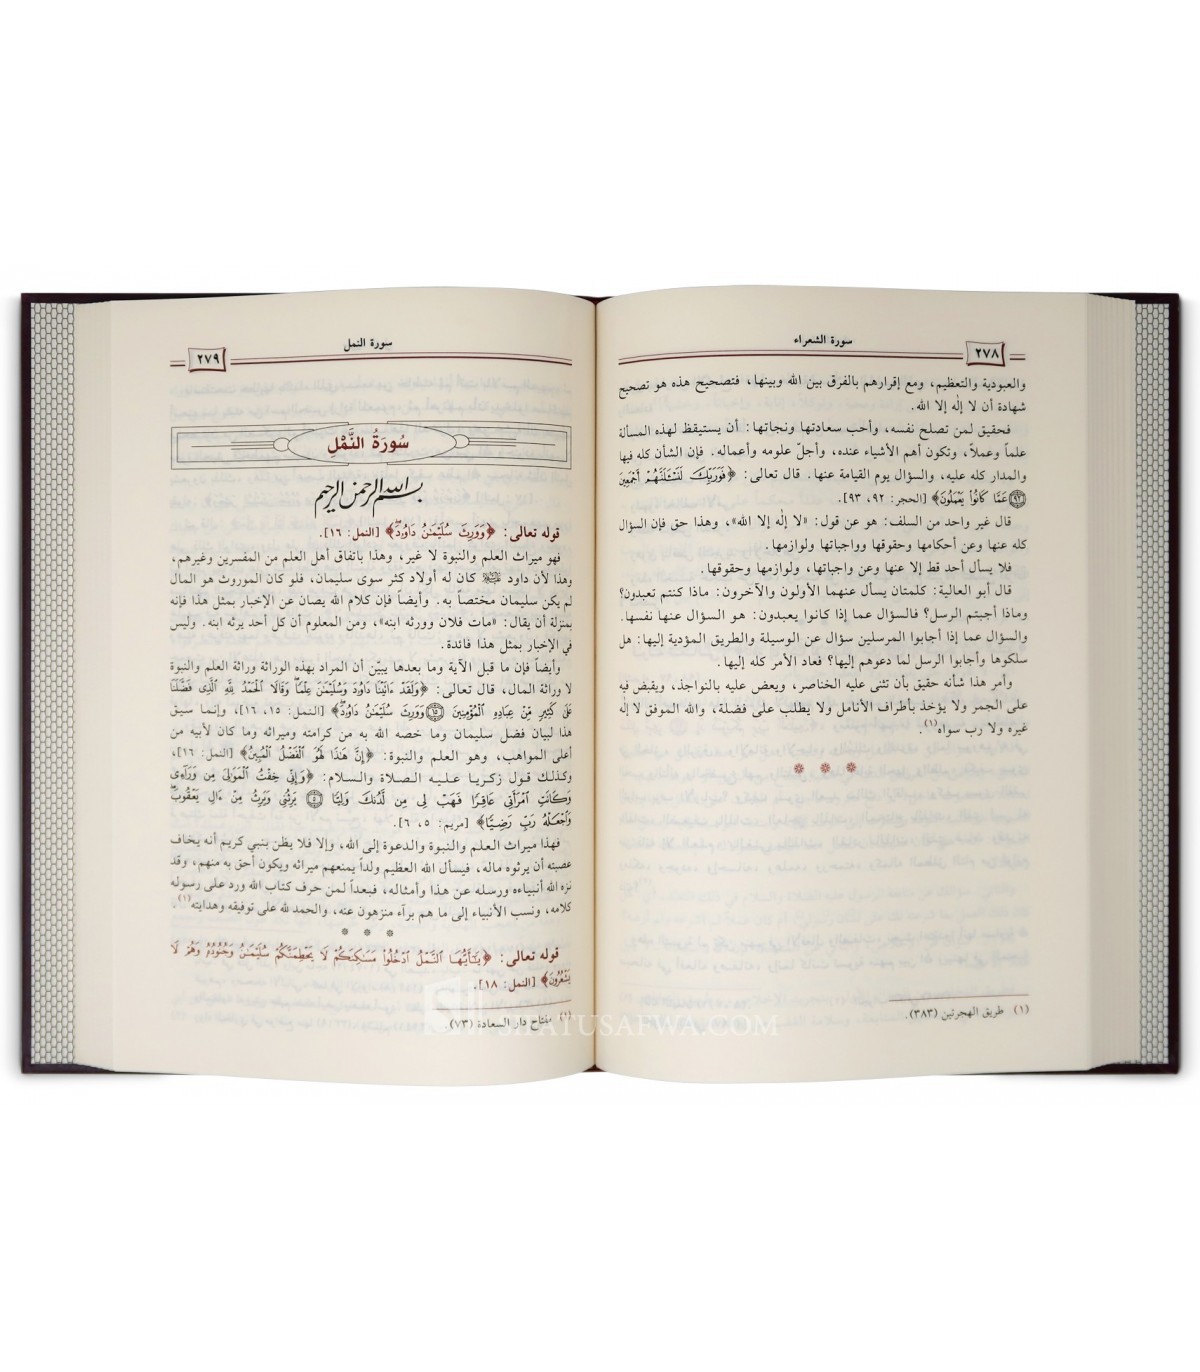 ٢٧٨
سورة الشعراء
والعبودية والتعظيم، ومع إقرارهم بالفرق بين الله وبينها، فتصحيح هذه هو تصحيح
شهادة أن لا إله إلا الله.
فحقيق لمن تصلح نفسه، وأحب سعادتها ونجاتها: أن يستيقظ لهذه المسألة
علماً وعملاً، وتكون أهم الأشياء عنده، وأجلّ علومه وأعماله. فإن الشأن كله فيها
والمدار كله عليه، والسؤال يوم القيامة عنها. قال تعالى: ﴿فَوَرَبِّكَ لَنَسْـَٔلَنَّهُمْ أَجْمَعِينَ
٩٢ عَمَّا كَانُوا۟ يَعْمَلُونَ﴾ [الحجر: ٩٢، ٩٣].
قال غير واحد من السلف: هو عن قول: «لا إله إلا الله»، وهذا حق فإن السؤال
كله عنها وعن أحكامها وحقوقها وواجباتها ولوازمها.
فلا يسأل أحد قط إلا عنها وعن واجباتها، ولوازمها وحقوقها.
قال أبو العالية: كلمتان يسأل عنهما الأولون والآخرون: ماذا كنتم تعبدون؟
وماذا أجبتم الرسل؟ فالسؤال عما إذا كانوا يعبدون: هو السؤال عنها نفسها.
والسؤال عما إذا أجابوا المرسلين سؤال عن الوسيلة والطريق المؤدية إليها: هل
سلكوها وأجابوا الرسل لما دعوهم إليها؟ فعاد الأمر كله إليها.
وأمر هذا شأنه حقيق بأن تثنى عليه الخناصر، ويعض عليه بالنواجذ، ويقبض فيه
على الجمر ولا يؤخذ بأطراف الأنامل ولا يطلب على فضلة، والله الموفق لا إله
غيره ولا رب سواه(١).
(١) طريق الهجرتين (٣٨٣).
سورة النمل
٢٧٩
سُورَةُ النَّمْلِ
بسم الله الرحمن الرحيم
قوله تعالى: ﴿وَوَرِثَ سُلَيْمَـٰنُ دَاوُۥدَ﴾ [النمل: ١٦].
فهو ميراث العلم والنبوة لا غير، وهذا باتفاق أهل العلم من المفسرين وغيرهم،
وهذا لأن داود ﷺ كان له أولاد كثر سوى سليمان، فلو كان الموروث هو المال
لم يكن سليمان مختصاً به. وأيضاً فإن كلام الله يصان عن الإخبار بمثل هذا فإنه
بمنزلة أن يقال: «مات فلان وورثه ابنه»، ومن المعلوم أن كل أحد يرثه ابنه. وليس
في الإخبار بمثل هذا فائدة.
وأيضاً فإن ما قبل الآية وما بعدها يبيّن أن المراد بهذه الوراثة وراثة العلم والنبوة
لا وراثة المال، قال تعالى: ﴿وَلَقَدْ ءَاتَيْنَا دَاوُۥدَ وَسُلَيْمَـٰنَ عِلْمًا وَقَالَا ٱلْحَمْدُ لِلَّهِ ٱلَّذِى فَضَّلَنَا
عَلَىٰ كَثِيرٍ مِّنْ عِبَادِهِ ٱلْمُؤْمِنِينَ ١٥ وَوَرِثَ سُلَيْمَـٰنُ دَاوُۥدَ﴾ [النمل: ١٥، ١٦]، وإنما سيق
هذا لبيان فضل سليمان وما خصه الله به من كرامته وميراثه وما كان لأبيه من
أعلى المواهب، وهو العلم والنبوة: ﴿إِنَّ هَـٰذَا لَهُوَ ٱلْفَضْلُ ٱلْمُبِينُ﴾ [النمل: ١٦]،
وكذلك قول زكريا عليه الصلاة والسلام: ﴿وَإِنِّى خِفْتُ ٱلْمَوَٰلِىَ مِن وَرَآءِى
وَكَانَتِ ٱمْرَأَتِى عَاقِرًا فَهَبْ لِى مِن لَّدُنكَ وَلِيًّا ٥ يَرِثُنِى وَيَرِثُ مِنْ ءَالِ يَعْقُوبَ
وَٱجْعَلْهُ رَبِّ رَضِيًّا﴾ [مريم: ٥، ٦].
فهذا ميراث العلم والنبوة والدعوة إلى الله، وإلا فلا يظن بنبي كريم أنه يخاف
عصبته أن يرثوه ماله، فيسأل الله العظيم ولداً يمنعهم ميراثه ويكون أحق به منهم، وقد
نزه الله أنبياءه ورسله عن هذا وأمثاله، فبعداً لمن حرف كتاب الله ورد على رسوله
كلامه، ونسب الأنبياء إلى ما هم برآء منزهون عنه، والحمد لله على توفيقه وهدايته(١).
قوله تعالى: ﴿يَـٰٓأَيُّهَا ٱلنَّمْلُ ٱدْخُلُوا۟ مَسَـٰكِنَكُمْ لَا يَحْطِمَنَّكُمْ سُلَيْمَـٰنُ وَجُنُودُهُۥ وَهُمْ لَا
يَشْعُرُونَ﴾ [النمل: ١٨].
(١) مفتاح دار السعادة (٧٣).